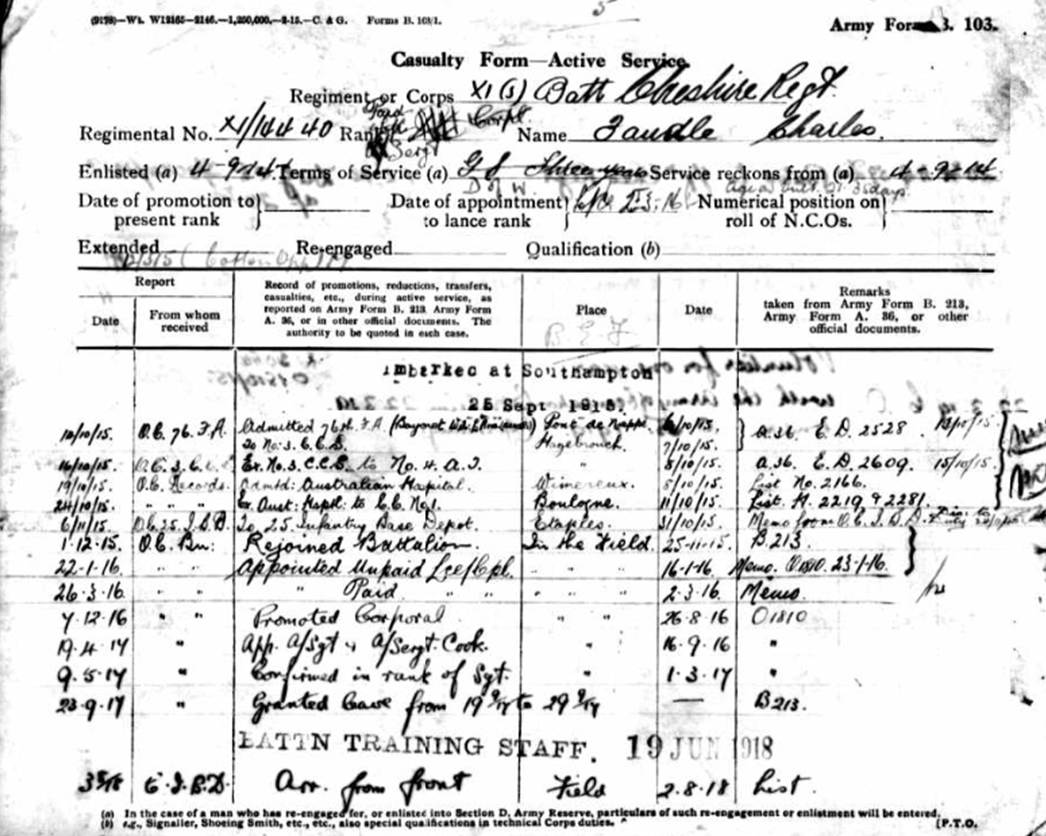 (9178)—Wt. W12165—2146.—1,250,000.—2-15.—C. & G. Forms B. 103/1.
5
Army Form B. 103.
Casualty Form—Active Service.
Regiment or Corps XI (S) Batt Cheshire Regt.
Regimental No. XI/14440 Rank Corpl. Name Taudle Charles.
Sergt
Enlisted (a) 4-9-14. Terms of Service (a) G S Three years Service reckons from (a) 4-9-14
D of W.
Date of promotion to present rank
Date of appointment to lance rank
Numerical position on roll of N.C.Os.
Extended Re-engaged Qualification (b)
Report
Date
From whom received
Record of promotions, reductions, transfers, casualties, etc., during active service, as reported on Army Form B. 213, Army Form A. 36, or in other official documents. The authority to be quoted in each case.
Place
B.E.F
Date
Remarks taken from Army Form B. 213, Army Form A. 36, or other official documents.
Embarked at Southampton
25 Sept 1915.
O.C. 76. F.A. Admitted 76th F.A. (Bayonet Pont de Nieppe 6/10/15.
To No. 3. C.C.S. Hazebrouck 7/10/15. A.36. E.D. 2528 13/10/15.
16/10/15. O.C. 3. C.C.S. Ex. No. 3. C.C.S. to No. 4. A.T. " 8/10/15. A.36. E.D. 2609. 15/10/15.
19/10/15. O.C. Records. Admtd: Australian Hospital. Wimereux. 8/10/15. List No. 2166.
24/10/15. " " " Ex. Aust: Hospl: to C.C. No. 1. Boulogne. 11/10/15. List. H. 2219 & 2281.
6/11/15. O.C. 25. I.B.D. To 25. Infantry Base Depot. Etaples. 31/10/15. Memo from O.C. I.B.D.
1.12.15. O.C. Bn: Rejoined Battalion. In the Field. 25-11-15. B.213.
22.1.16. " " Appointed Unpaid Lce/Cpl. " " 16-1-16. Memo. O1810. 23-1-16.
26.3.16. " " " Paid. " " " " " 2-3-16. Memo.
7.12.16 " " Promoted Corporal " " 26-8-16 O1810
19.4.17 " App. A/Sgt & A/Sergt. Cook. " 16-9-16 "
9.5.17 " Confirmed in rank of Sgt. " 1-3-17 "
23.9.17 " Granted leave from 19/9/17 to 29/9/17 — B213.
BATTN TRAINING STAFF. 19 JUN 1918
C.I.B.D. Arr. from front Field 2.8.18 List.
(a) In the case of a man who has re-engaged for, or enlisted into Section D. Army Reserve, particulars of such re-engagement or enlistment will be entered.
(b) e.g., Signaller, Shoeing Smith, etc., etc., also special qualifications in technical Corps duties.
[P.T.O.